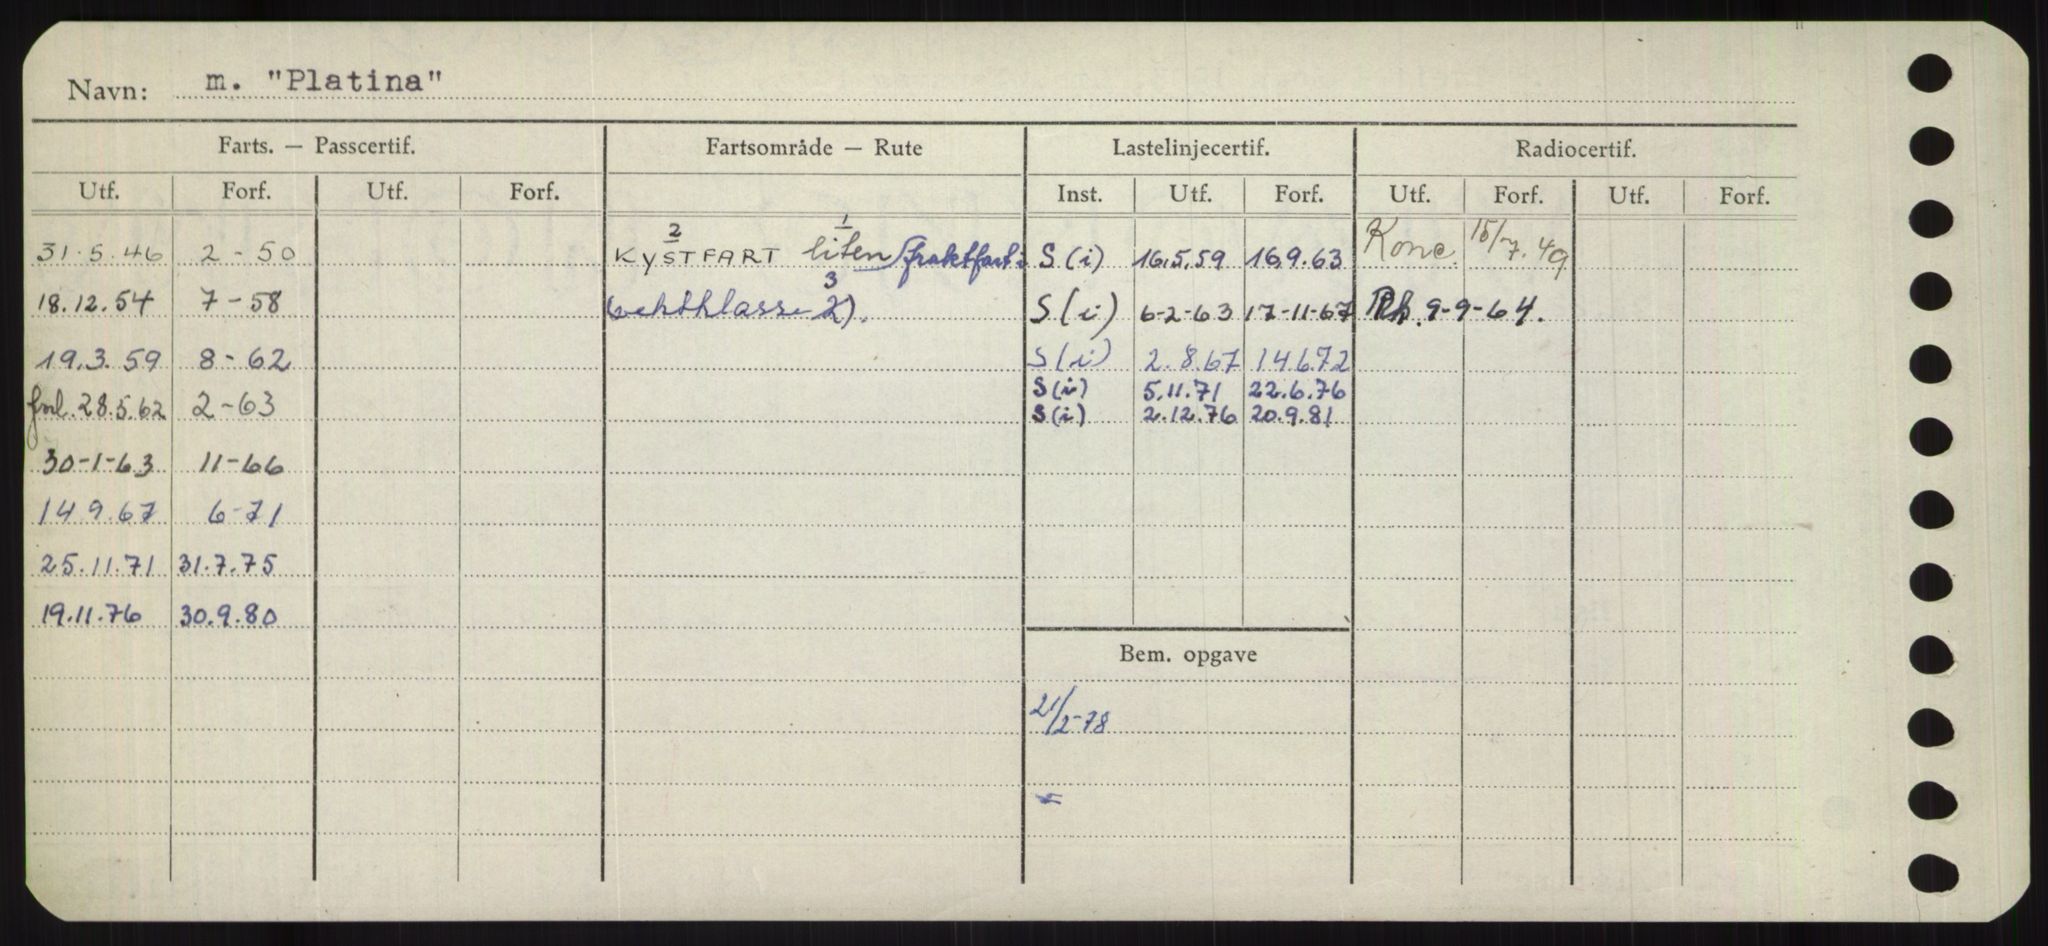 Navn: m. "Platina"
Farts. — Passcertif. Fartsområde — Rute Lastelinjecertif. Radiocertif.
Utf. Forf. Utf. Forf. Inst. Utf. Forf. Utf. Forf. Utf. Forf.
2 1
31.5.46 2-50 KYSTFART liten (fraktfart i S(i) 16.5.59 16.9.63 Konc. 15/7.49
3
18.12.54 7-58 vektklasse 2). S(i) 6-2-63 17-11-67 9-9-64.
19.3.59 8-62 S(i) 2.8.67 14.6.72
S(i) 5.11.71 22.6.76
forl. 28.5.62 2-63 S(i) 2.12.76 20.9.81
30-1-63 11-66
14.9.67 6-71
25.11.71 31.7.75
19.11.76 30.9.80
Bem. opgave
21/2-78